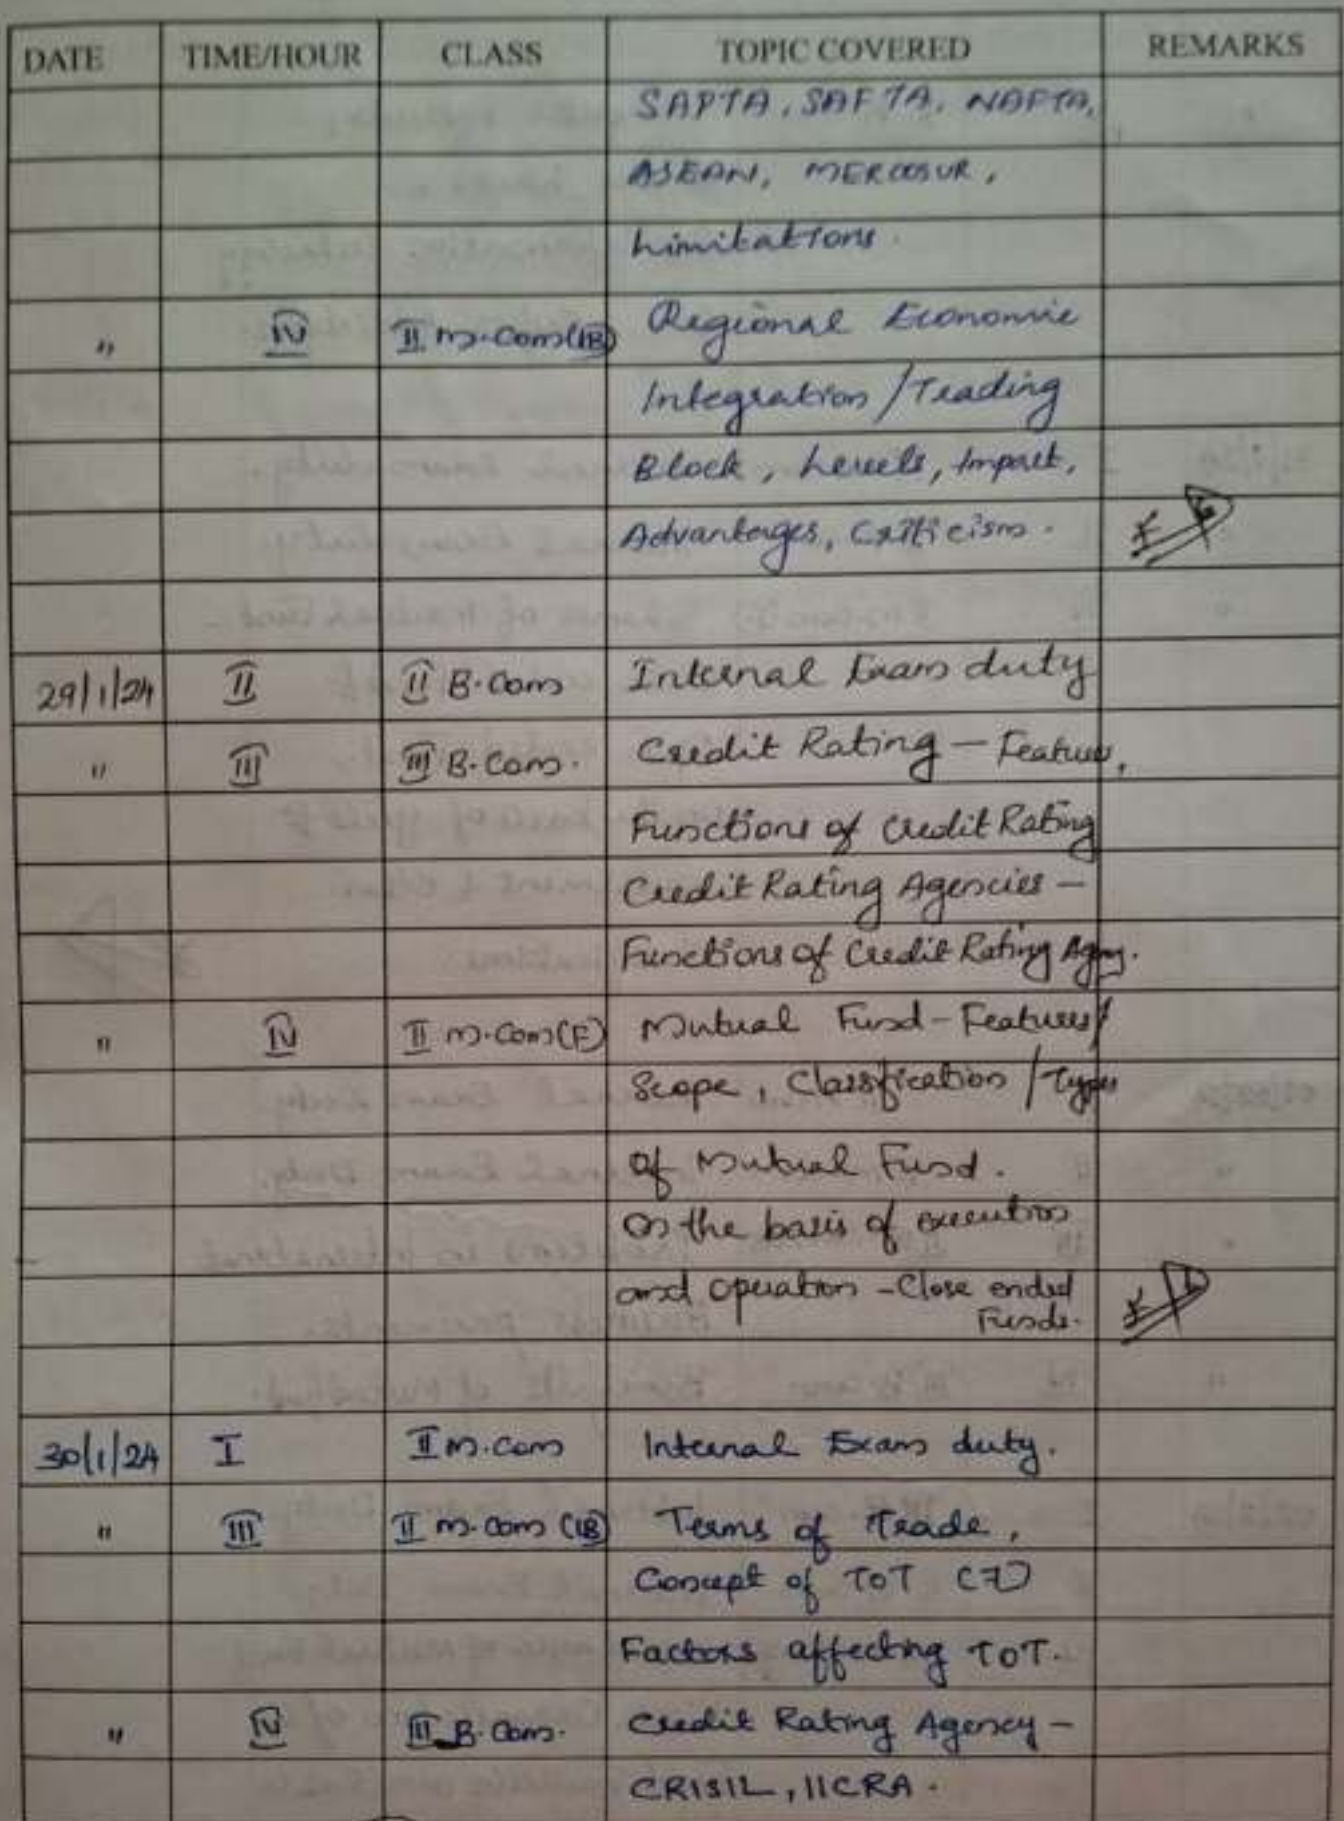 DATE TIME/HOUR CLASS TOPIC COVERED REMARKS
SAPTA, SAFTA, NAFTA,
ASEAN, MERCOSUR,
Limitations.
" IV II M.Com(IB) Regional Economic
Integration / Trading
Block, Levels, Impact,
Advantages, Criticism.
29/1/24 II II B.Com Internal Exam duty
" III III B.Com. Credit Rating - Features,
Functions of Credit Rating
Credit Rating Agencies -
Functions of Credit Rating Agency.
" IV II M.Com(F) Mutual Fund - Features/
Scope, Classification / Types
of Mutual Fund.
On the basis of execution
and operation - Close ended
Funds.
30/1/24 I II M.Com Internal Exam duty.
" III II M.Com (IB) Terms of Trade,
Concept of TOT (7)
Factors affecting TOT.
" IV III B.Com. Credit Rating Agency -
CRISIL, IICRA.